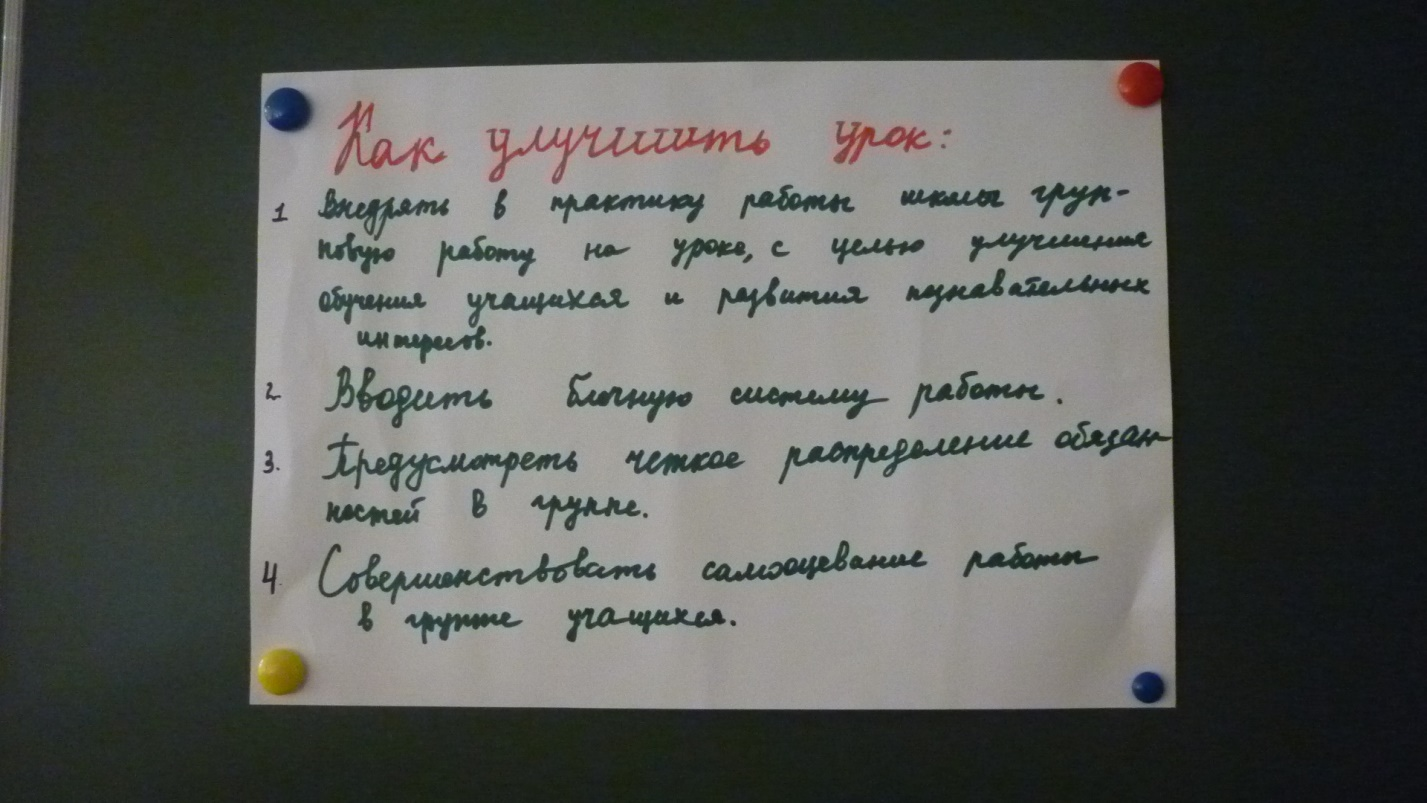 Как улучшить урок:
1 Внедрять в практику работы школы груп-
повую работу на уроке, с целью улучшения
обучения учащихся и развития познавательных
интересов.
2. Вводить блочную систему работы.
3. Предусмотреть четкое распределение обязан-
ностей в группе.
4. Совершенствовать самооцевание работы
в группе учащихся.